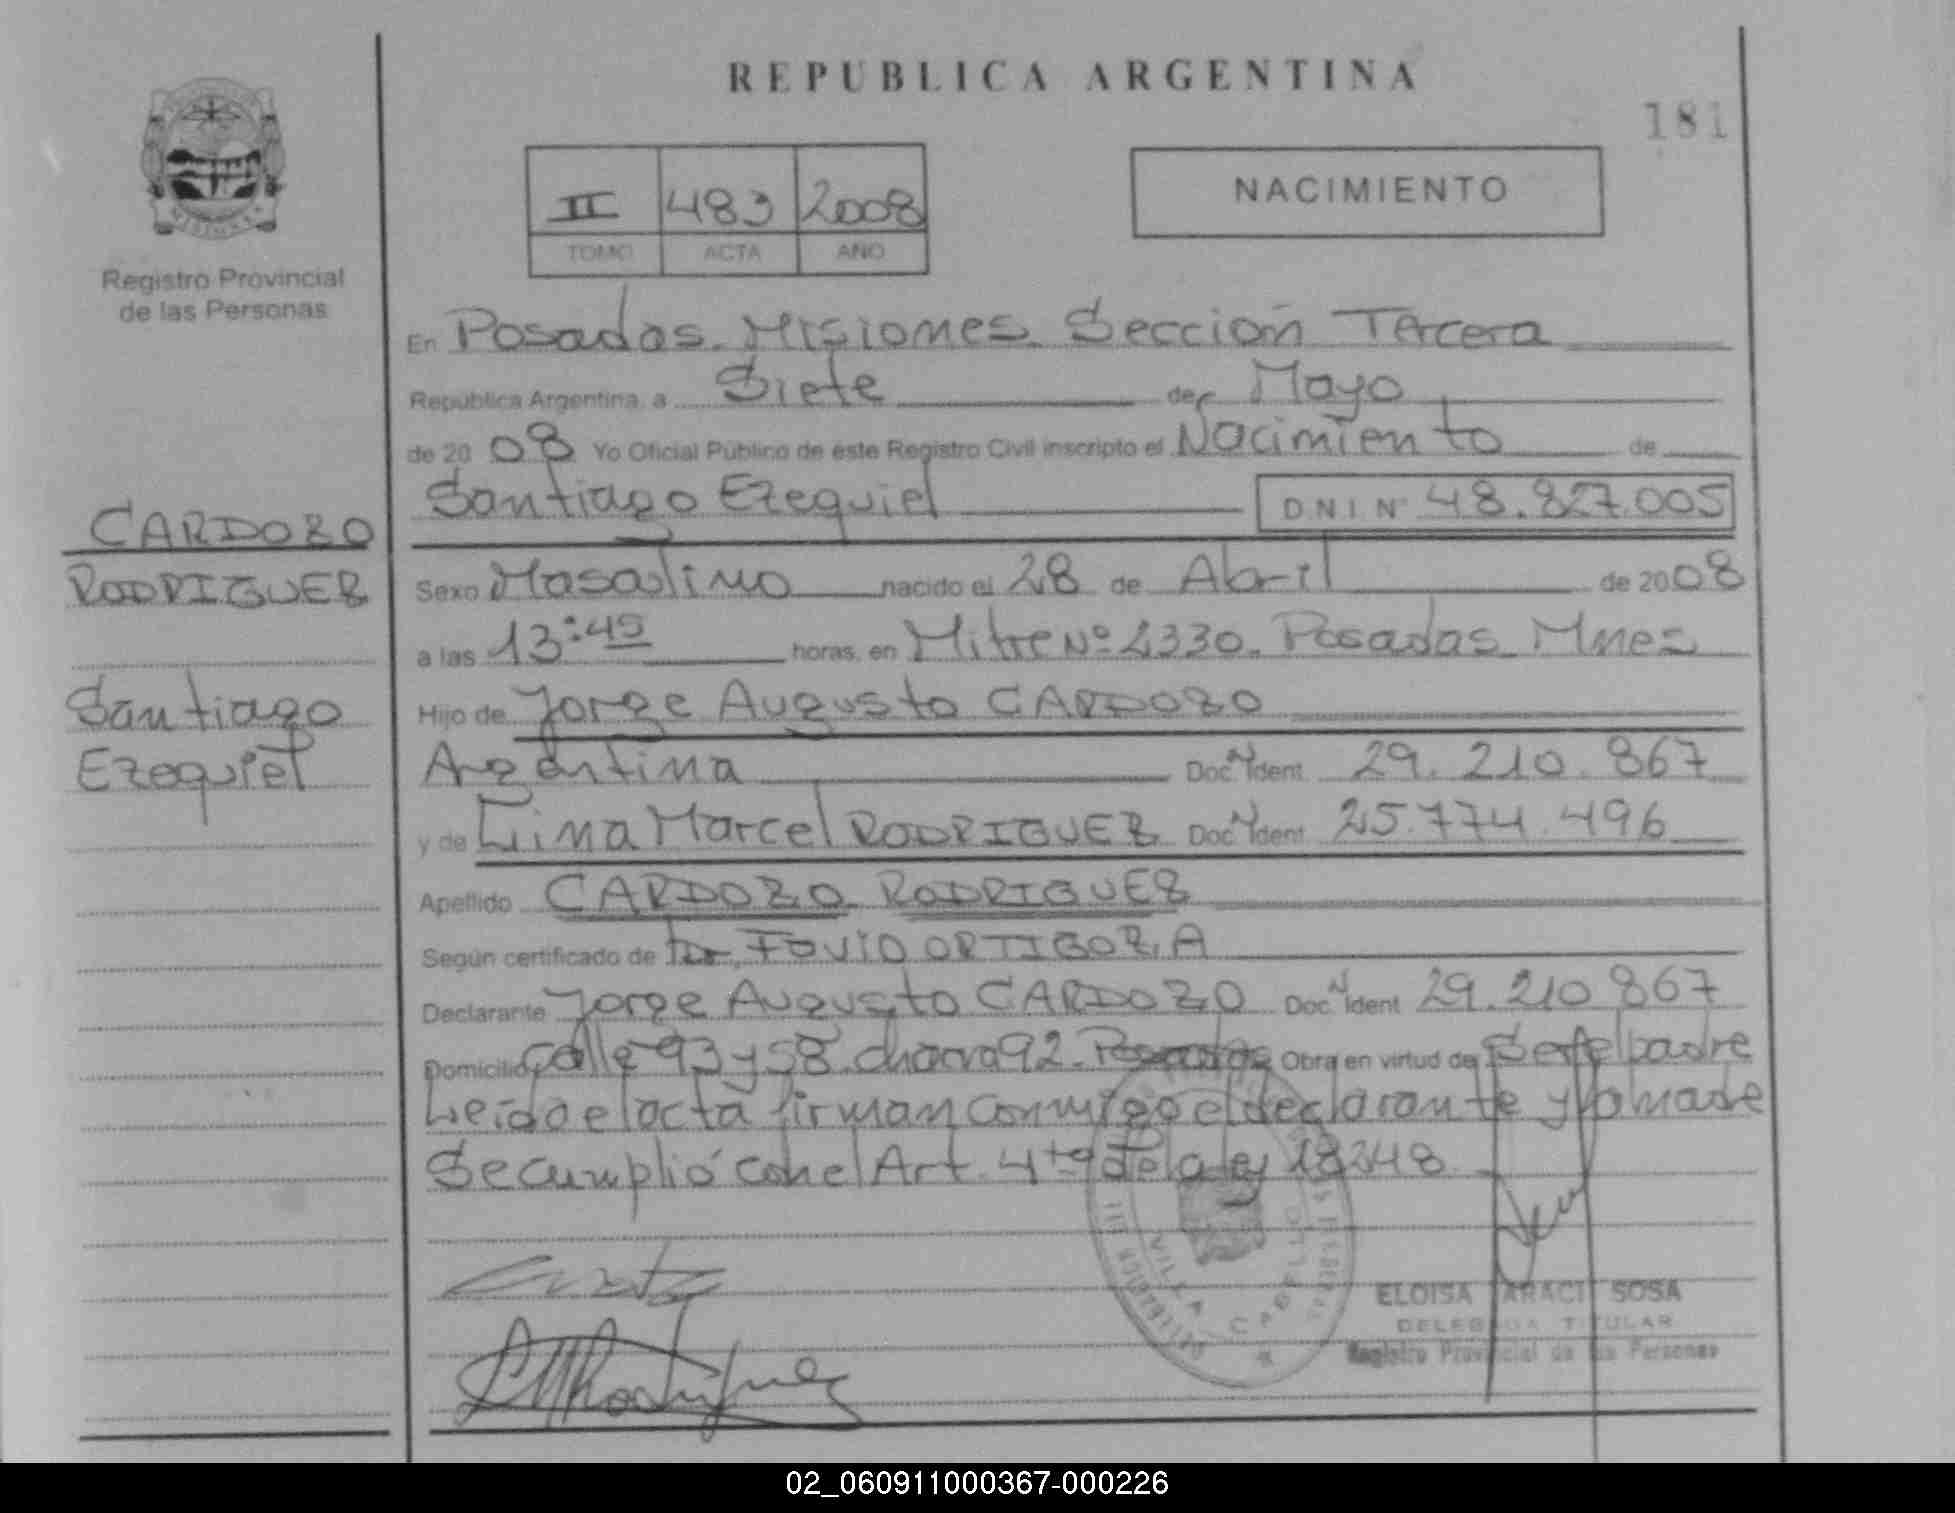 REPUBLICA ARGENTINA
181
II 483 2008
TOMO ACTA AÑO
NACIMIENTO
MISIONES
Registro Provincial
de las Personas
En Posadas Misiones Sección Tercera
República Argentina, a Siete de Mayo
de 2008 Yo Oficial Público de este Registro Civil inscripto el Nacimiento de
Santiago Ezequiel D.N.I. N° 48.827.005
CARDOZO
RODRIGUEZ
Santiago
Ezequiel
Sexo Masculino nacido el 28 de Abril de 2008
a las 13:45 horas, en Mitre Nº 2330. Posadas Mnes
Hijo de Jorge Augusto CARDOZO
Argentina Doc. N Ident. 29.210.867
y de Lina Marcel RODRIGUEZ Doc. N Ident. 25.774.496
Apellido CARDOZO RODRIGUEZ
Según certificado de Dr. ORTIGOZA
Declarante Jorge Augusto CARDOZO Doc. N Ident 29.210.867
Domicilio Calle 93 y 58 chacra 92 Posadas Obra en virtud de Ser el padre
Leída el acta firman conmigo el declarante y la madre
Se cumplió con el Art. 4to de la ley 18248
VILLA CABELLO
ELOISA ARACI SOSA
DELEGADA TITULAR
Registro Provincial de las Personas
02_060911000367-000226